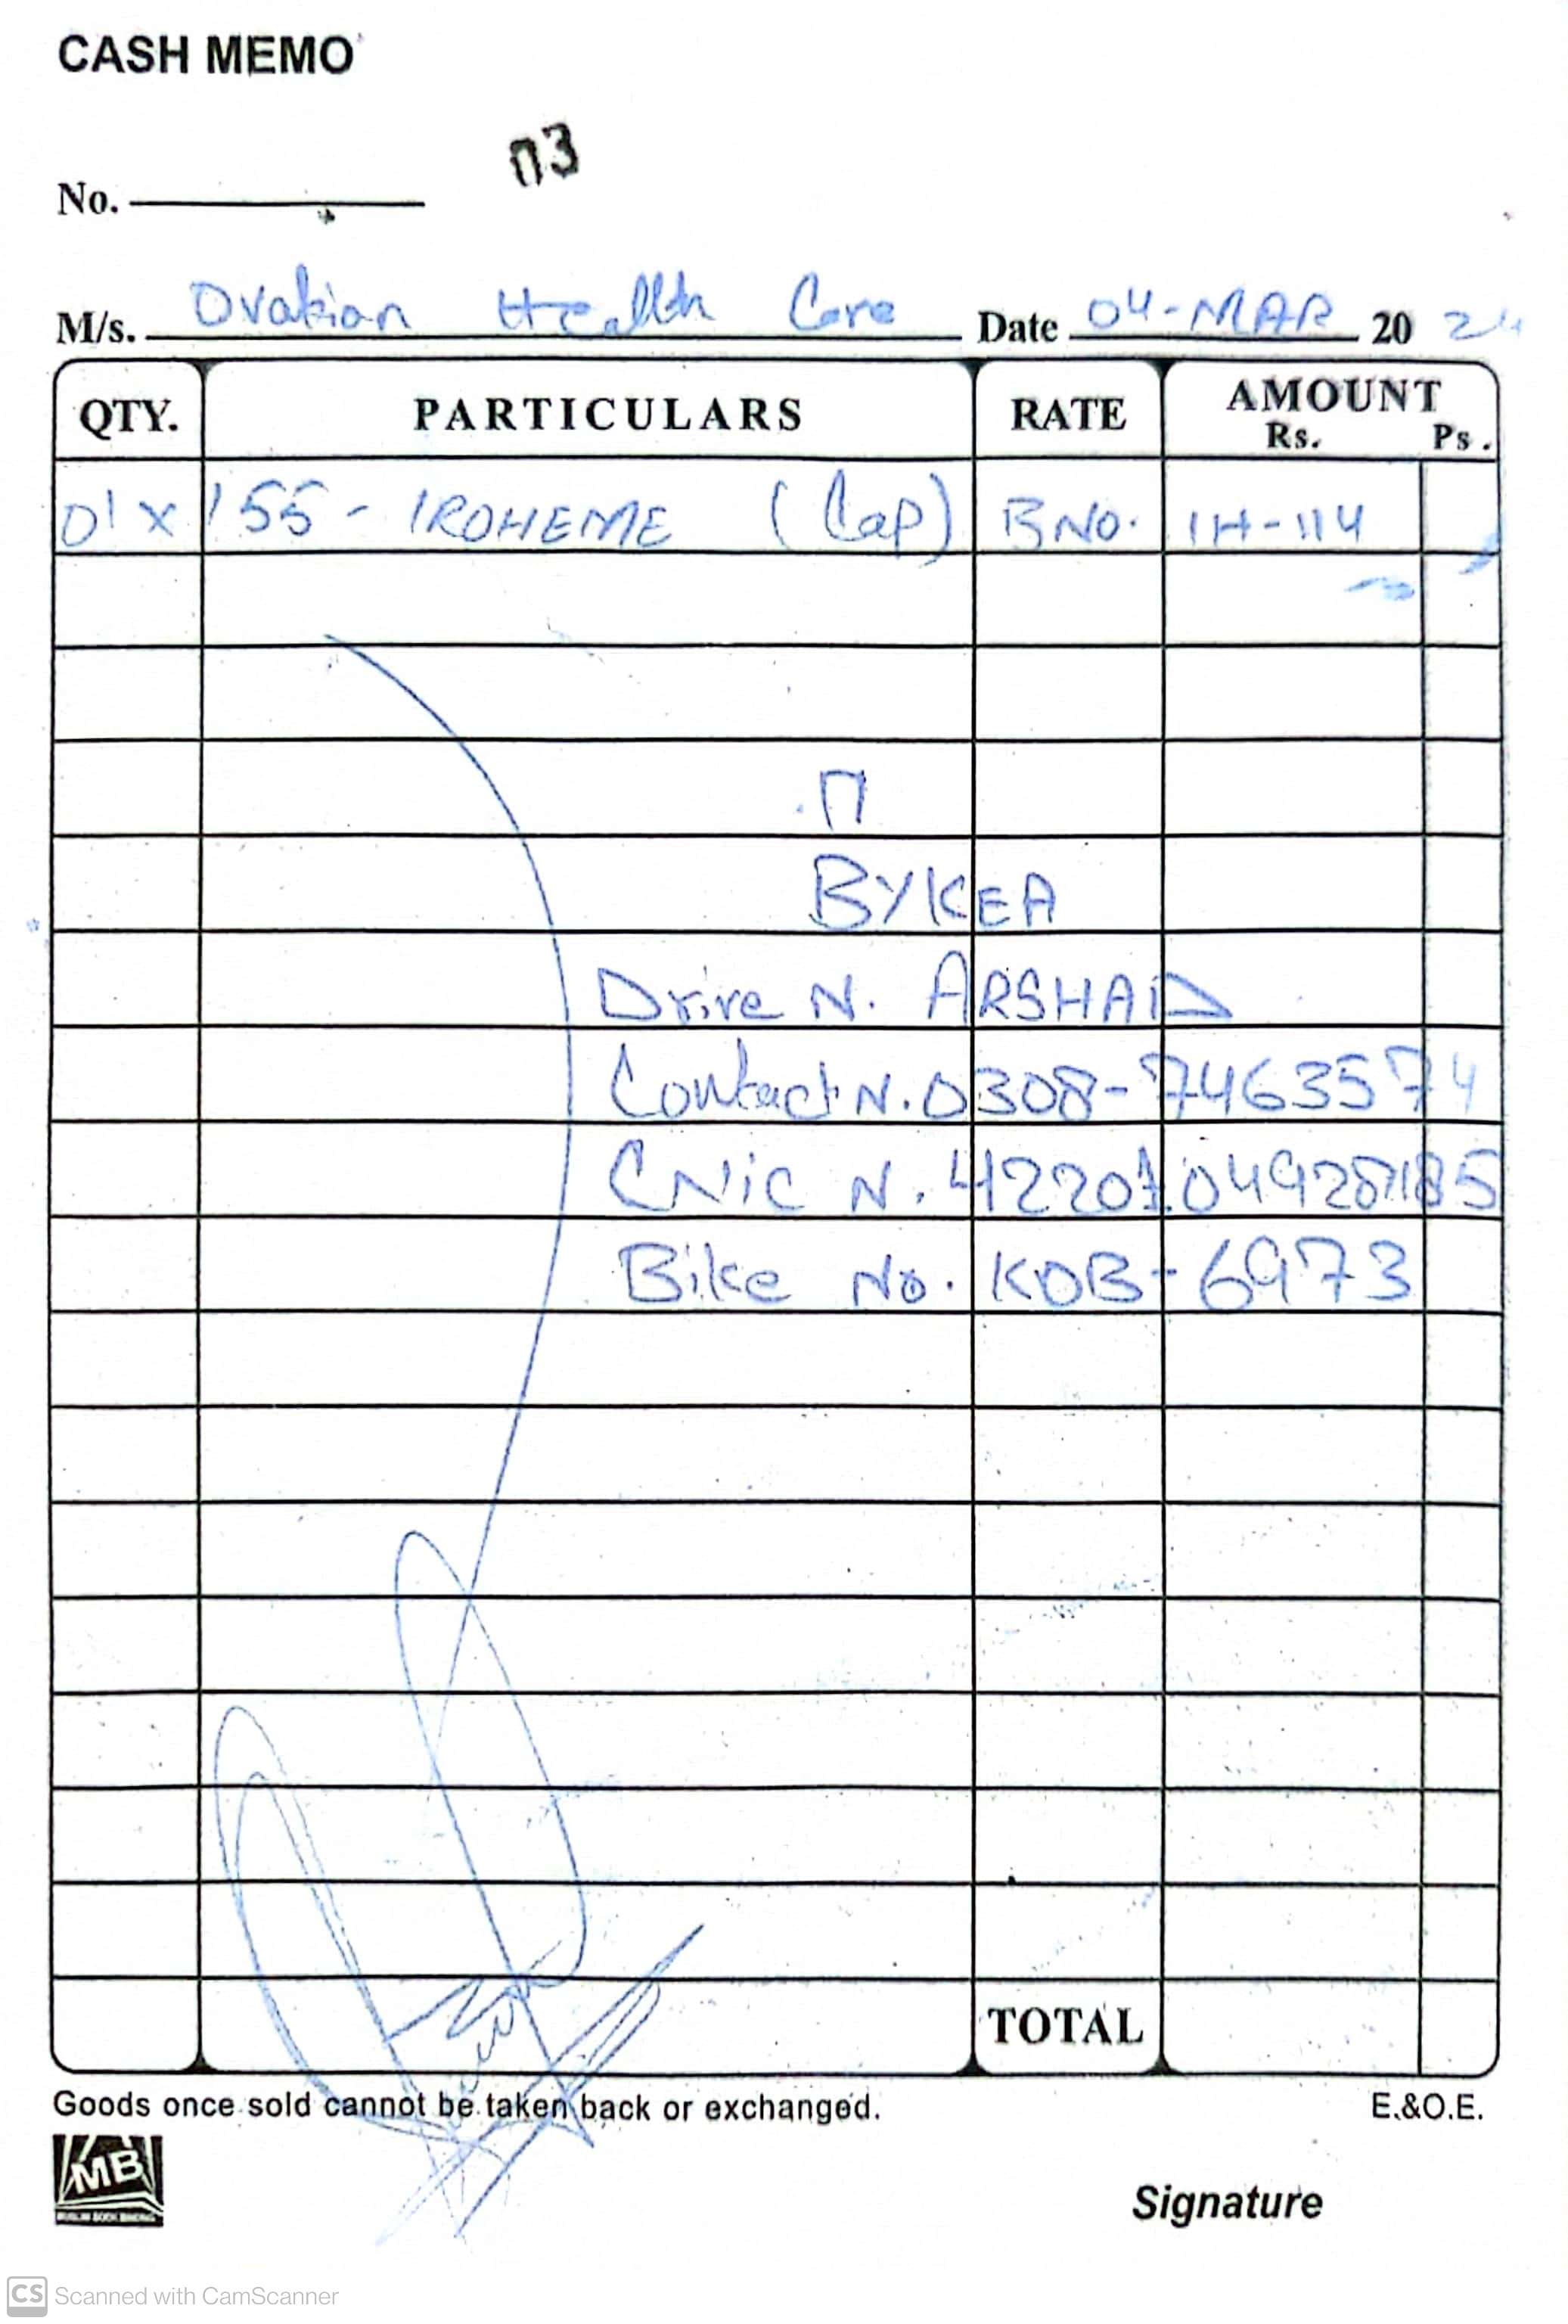 CASH MEMO
No.
M/s. Ovakian Health Care Date 04-MAR 20 24
QTY. PARTICULARS RATE AMOUNT
Rs. Ps.
01 x 155 - IROHEME (Cap) BNO. IH-114
BYKEA
Drive N. ARSHAD
Contact N. 0308-7463574
CNiC N. 42201
Bike No. KDB-6973
TOTAL
Goods once sold cannot be taken back or exchanged. E.&O.E.
MB
Signature
CS Scanned with CamScanner